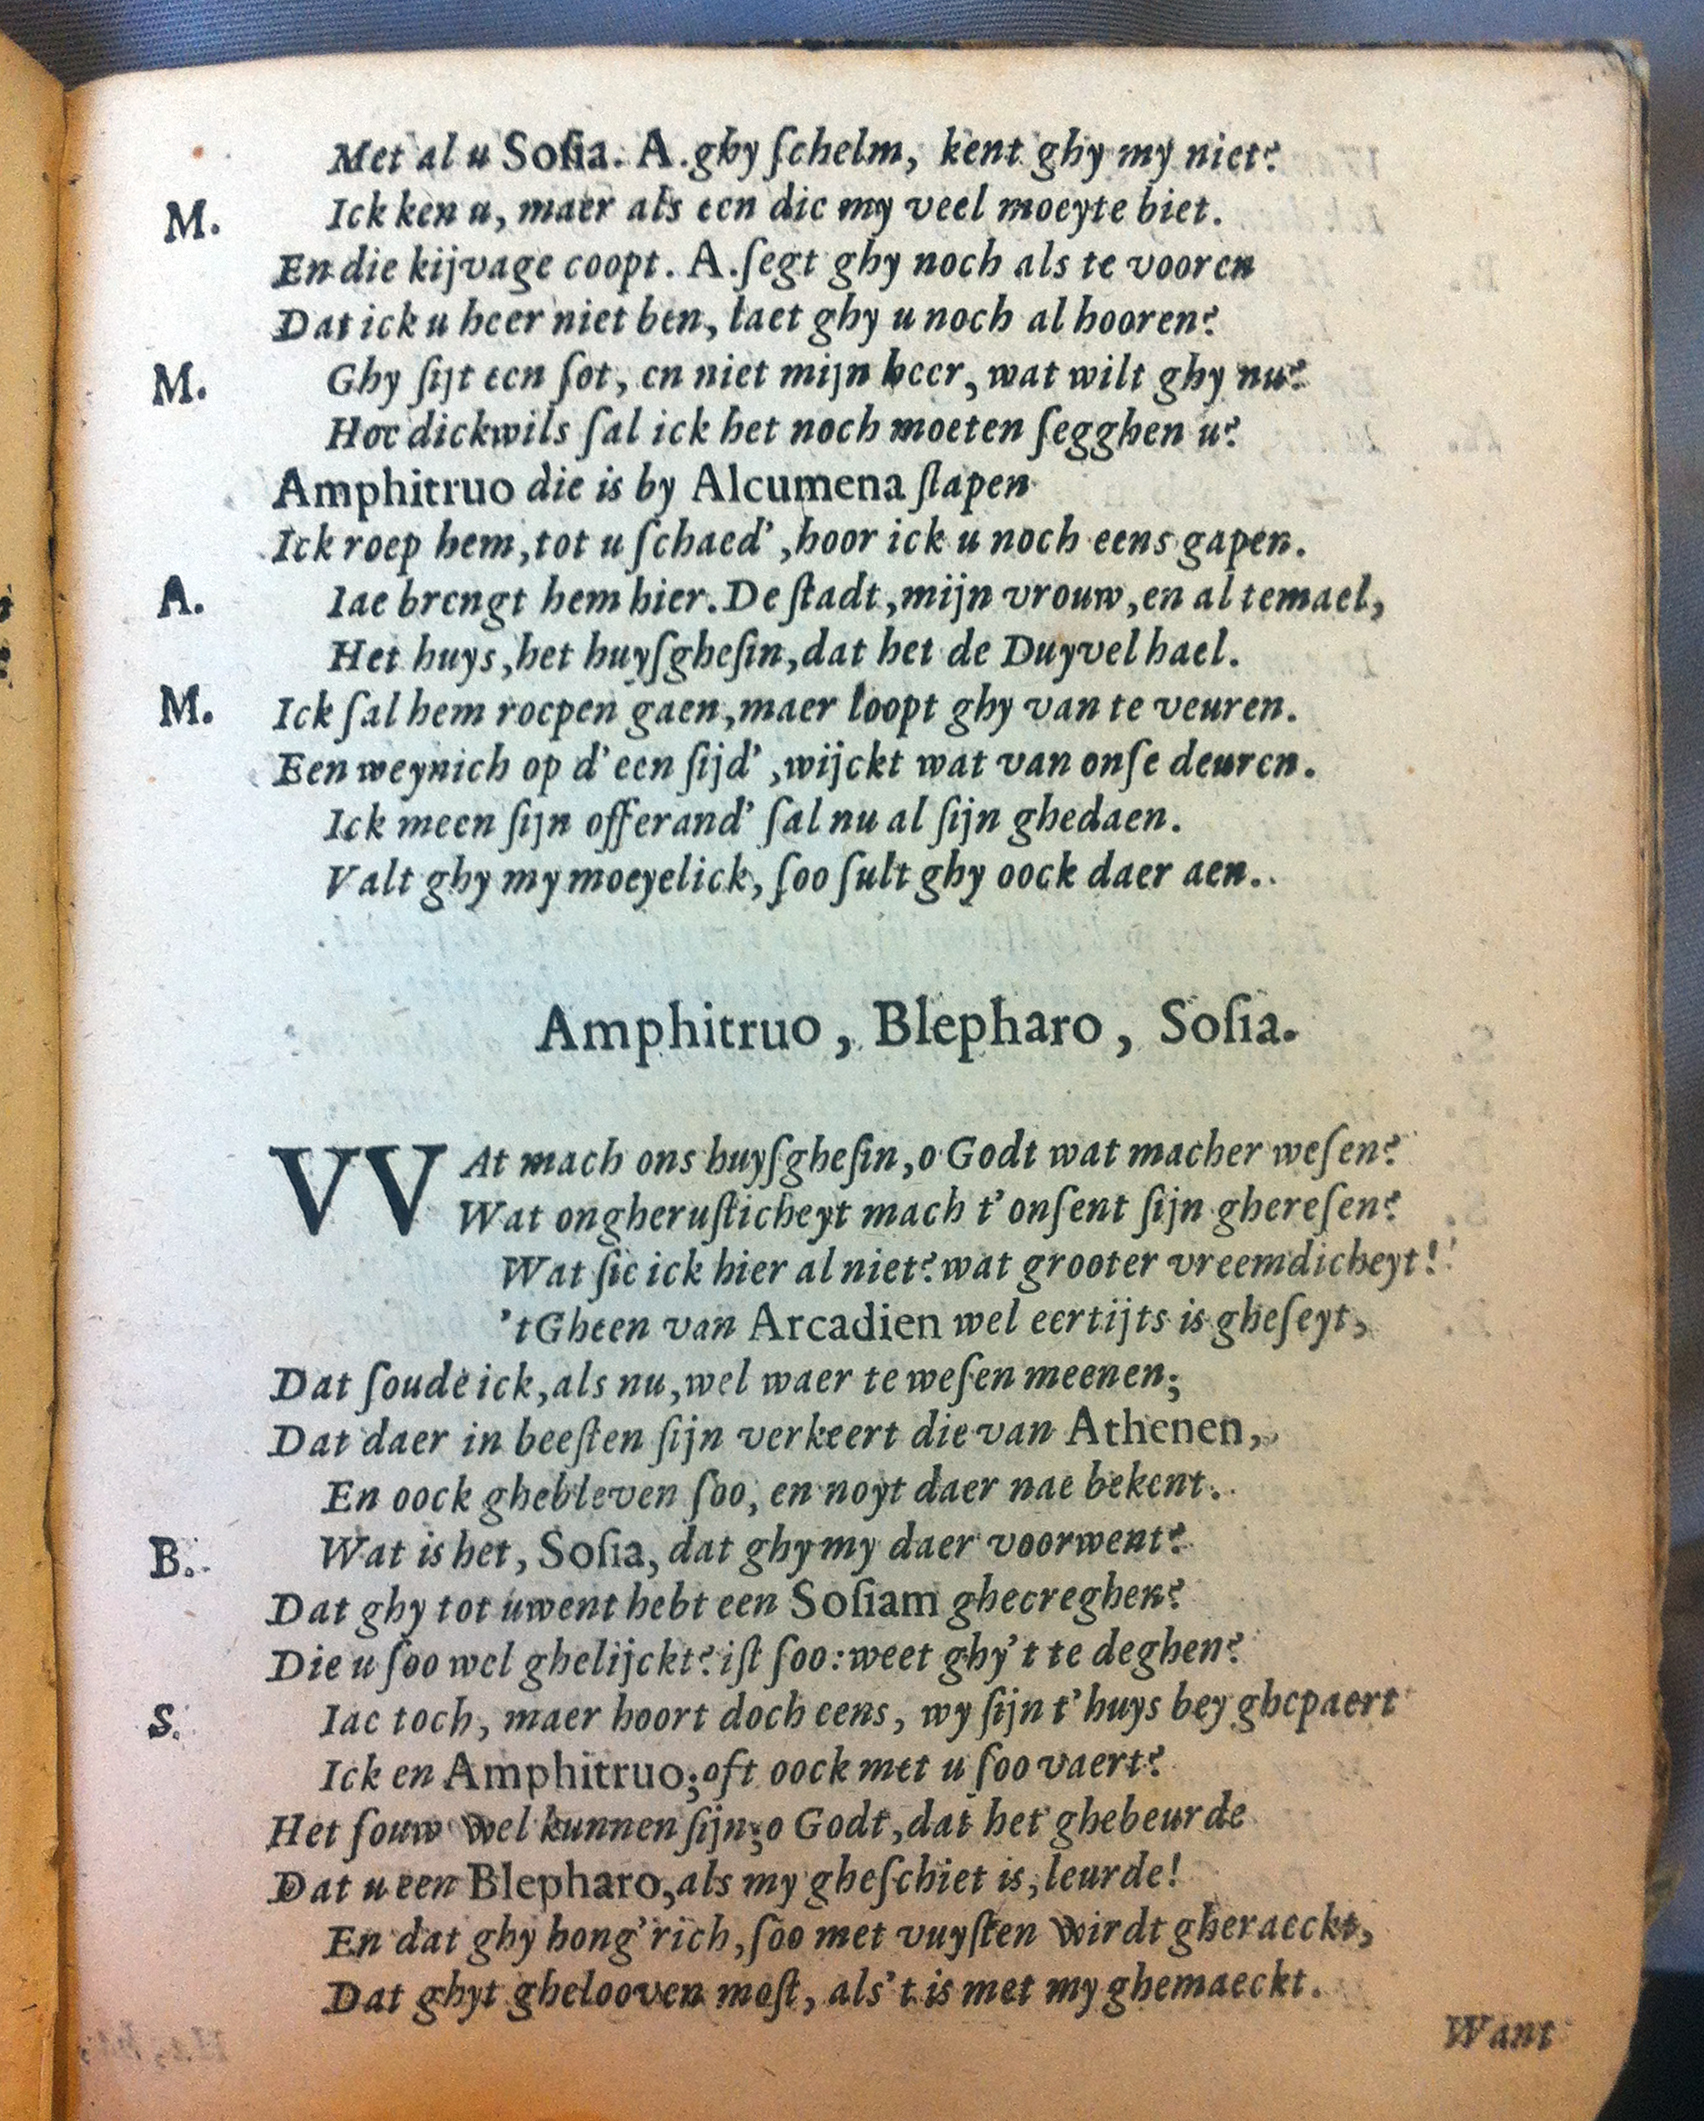 Met al u Soſia. A. ghy ſchelm, kent ghy my niet?
M. Ick ken u, maer als een die my veel moeyte biet.
En die kijvage coopt. A. ſegt ghy noch als te vooren
Dat ick u heer niet ben, laet ghy u noch al hooren?
M. Ghy ſijt een ſot, en niet mijn heer, wat wilt ghy nu?
Hoe dickwils ſal ick het noch moeten ſegghen u?
Amphitruo die is by Alcumena ſlapen
Ick roep hem, tot u ſchaed', hoor ick u noch eens gapen.
A. Iae brengt hem hier. De ſtadt, mijn vrouw, en al temael,
Het huys, het huyſgheſin, dat het de Duyvel hael.
M. Ick ſal hem roepen gaen, maer loopt ghy van te veuren.
Een weynich op d'een ſijd', wijckt wat van onſe deuren.
Ick meen ſijn offerand' ſal nu al ſijn ghedaen.
Valt ghy my moeyelick, ſoo ſult ghy oock daer aen.
Amphitruo, Blepharo, Soſia.
VVAt mach ons huyſgheſin, o Godt wat macher weſen?
Wat ongheruſticheyt mach t'onſent ſijn ghereſen?
Wat ſie ick hier al niet? wat grooter vreemdicheyt!
'tGheen van Arcadien wel eertijts is gheſeyt,
Dat ſoude ick, als nu, wel waer te weſen meenen;
Dat daer in beeſten ſijn verkeert die van Athenen,
En oock ghebleven ſoo, en noyt daer nae bekent.
B. Wat is het, Soſia, dat ghy my daer voorwent?
Dat ghy tot uwent hebt een Soſiam ghecreghen?
Die u ſoo wel ghelijckt? iſt ſoo: weet ghy't te deghen?
S. Iae toch, maer hoort doch eens, wy ſijn t'huys bey ghepaert
Ick en Amphitruo; oft oock met u ſoo vaert?
Het ſouw wel kunnen ſijn; o Godt, dat het ghebeurde
Dat u een Blepharo, als my gheſchiet is, leurde!
En dat ghy hong'rich, ſoo met vuyſten wirdt gheraeckt,
Dat ghyt ghelooven moſt, als't is met my ghemaeckt.
Want